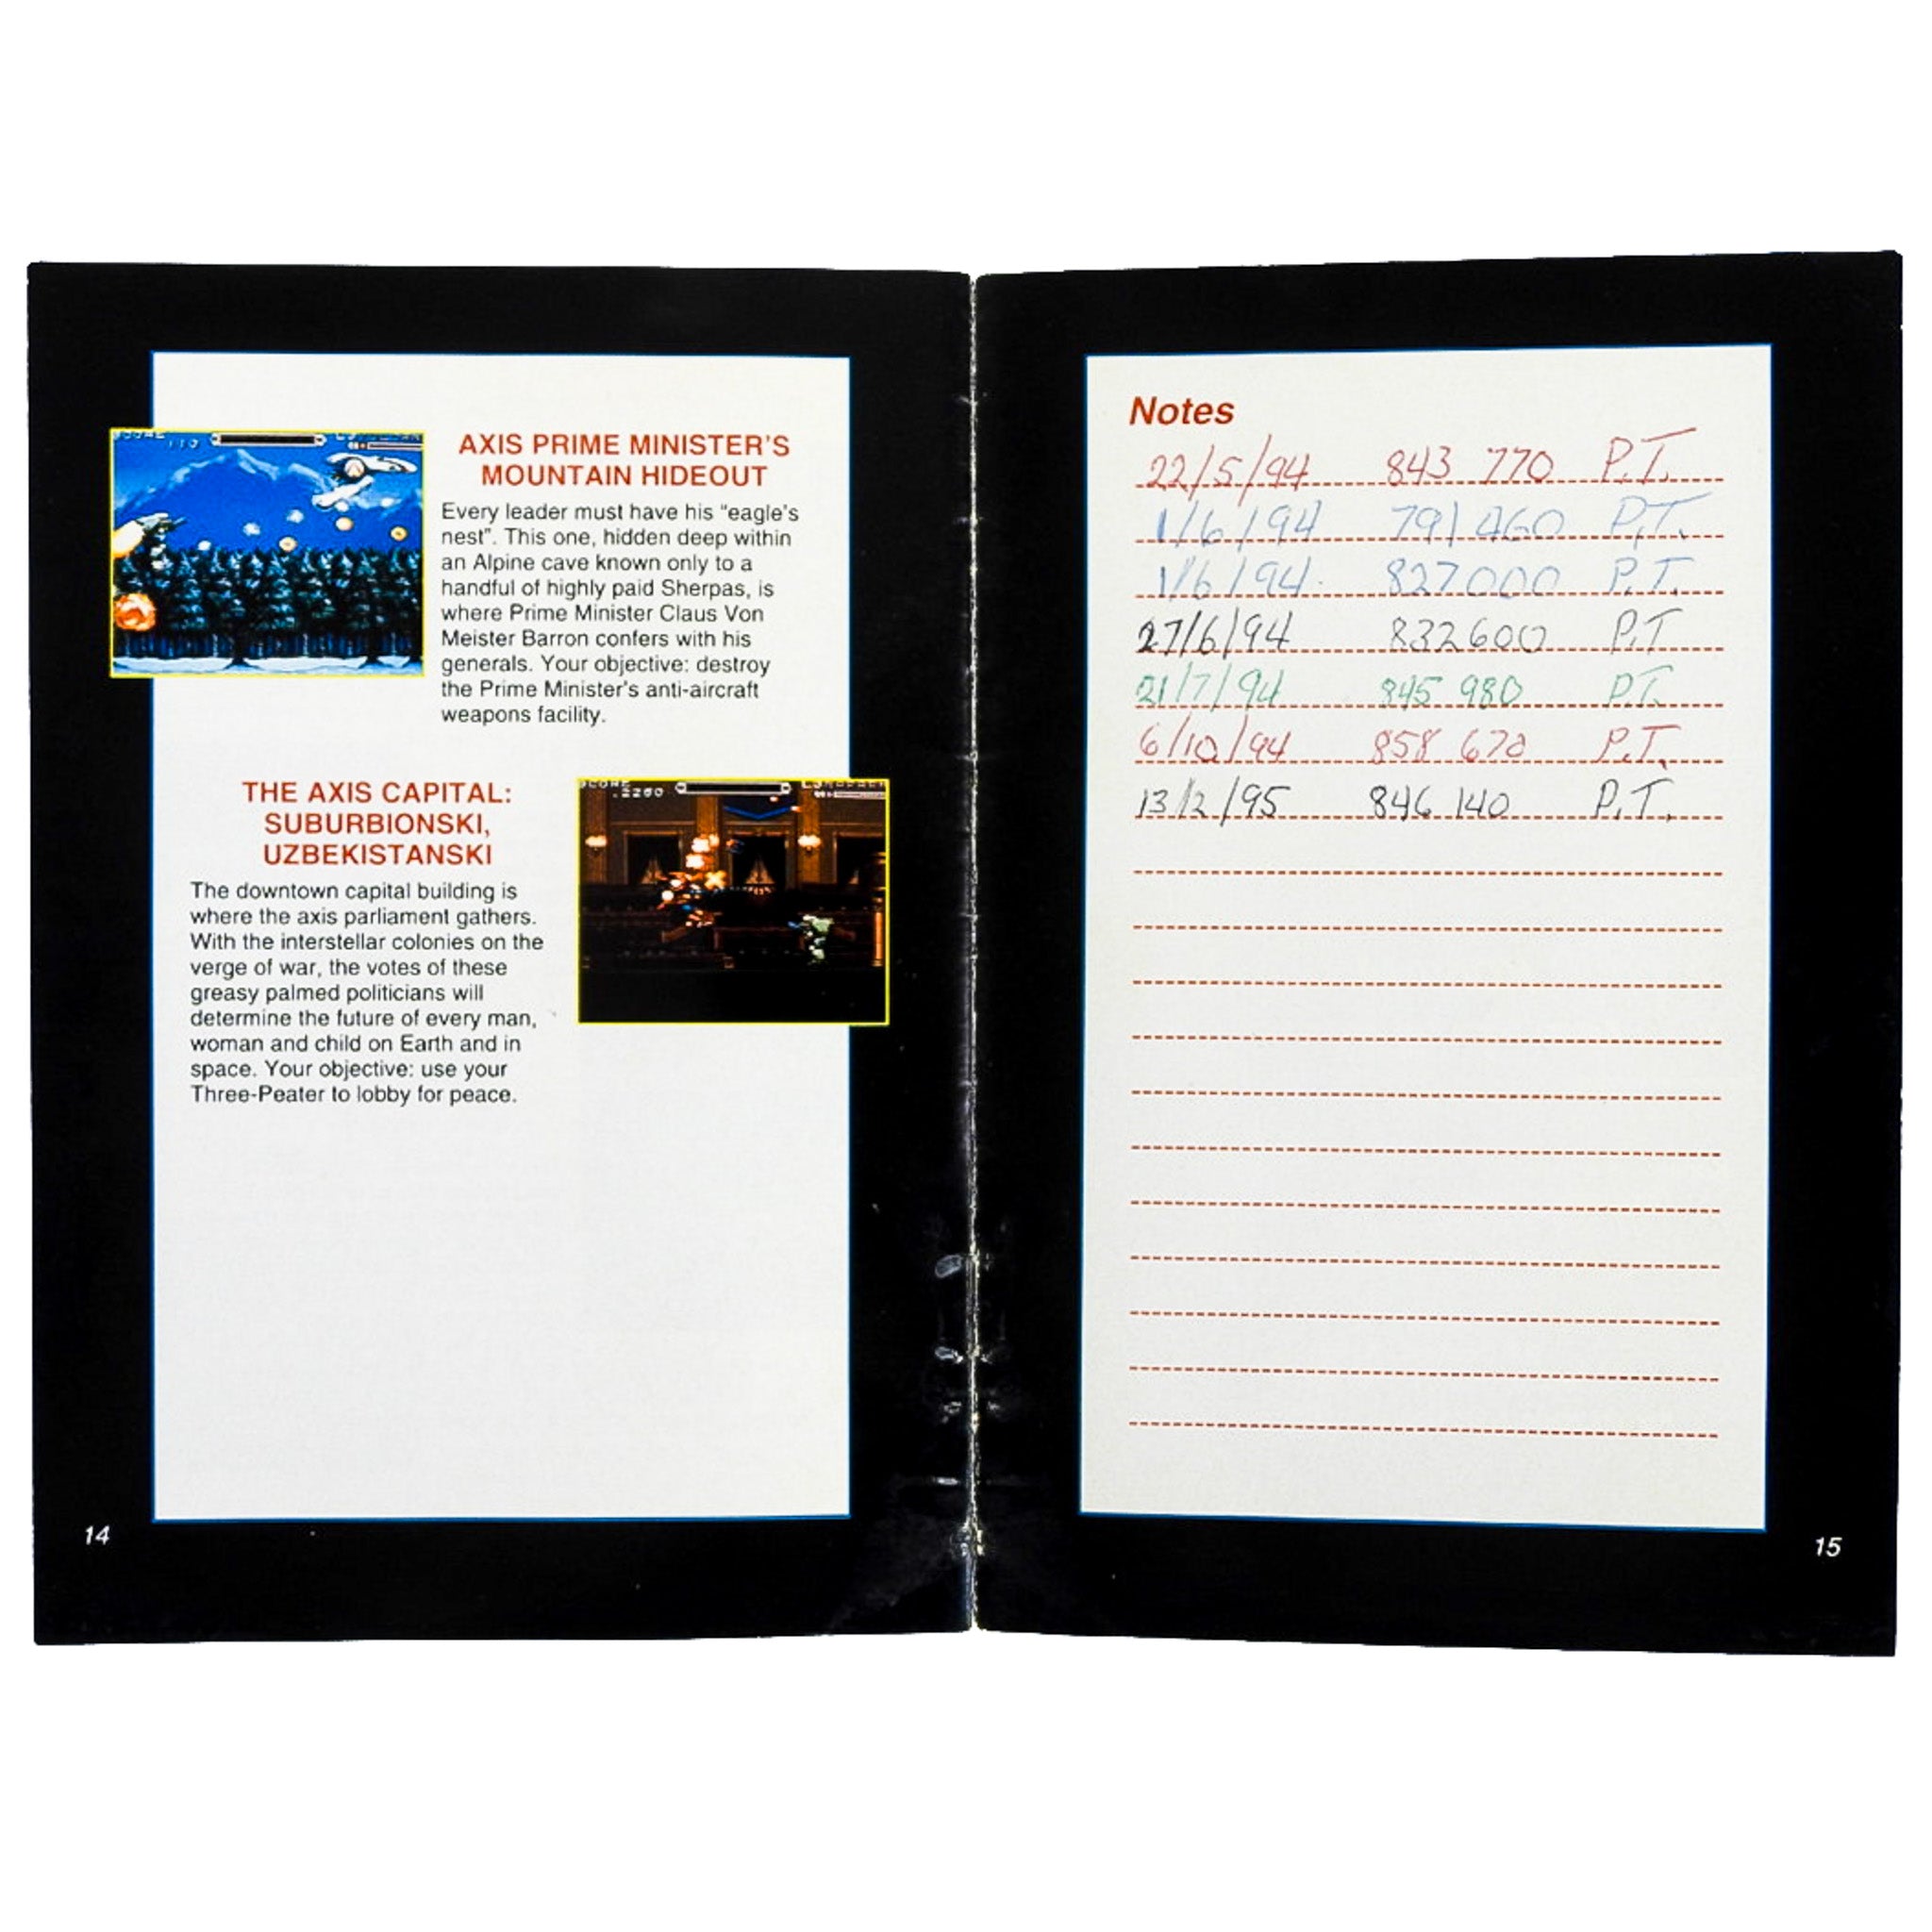 AXIS PRIME MINISTER'S
MOUNTAIN HIDEOUT
Every leader must have his "eagle's
nest". This one, hidden deep within
an Alpine cave known only to a
handful of highly paid Sherpas, is
where Prime Minister Claus Von
Meister Barron confers with his
generals. Your objective: destroy
the Prime Minister's anti-aircraft
weapons facility.
THE AXIS CAPITAL:
SUBURBIONSKI,
UZBEKISTANSKI
The downtown capital building is
where the axis parliament gathers.
With the interstellar colonies on the
verge of war, the votes of these
greasy palmed politicians will
determine the future of every man,
woman and child on Earth and in
space. Your objective: use your
Three-Peater to lobby for peace.
SCORE
2260
14
Notes
22/5/94 843 770 P.T.
1/6/94 791 460 P.T.
1/6/94. 827000 P.T.
27/6/94 832600 P.T
21/7/94 845 980 P.T.
6/10/94 858 670 P.T.
13/2/95 846 140 P.T.
15